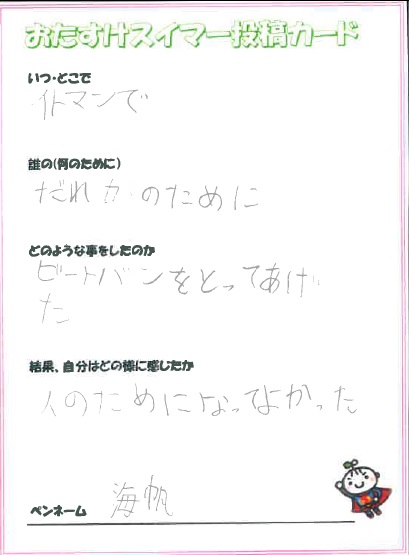 おたすけスイマー投稿カード
いつ・どこで
イトマンで
誰の(何のために)
だれかのために
どのような事をしたのか
ビートバンをとってあげ
た
結果、自分はどの様に感じたか
人のためになってよかった
ペンネーム 海帆